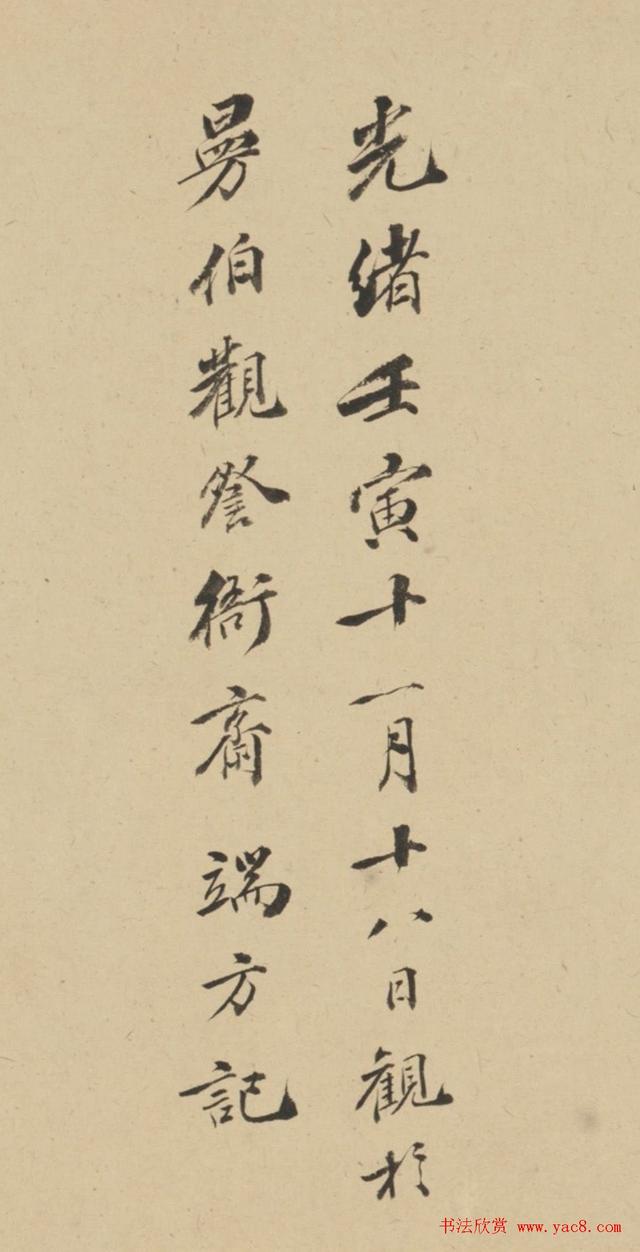 光緒壬寅十一月十八日觀於
曼伯觀詧衙齋端方記
书法欣赏 www.yac8.com